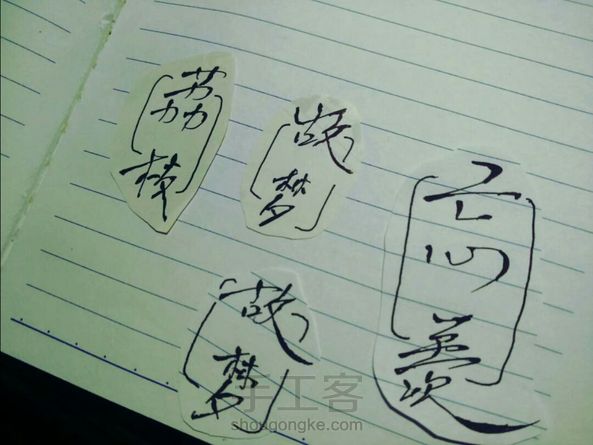 荔
故梦
忘羡
故梦
手工客
shougongke.com